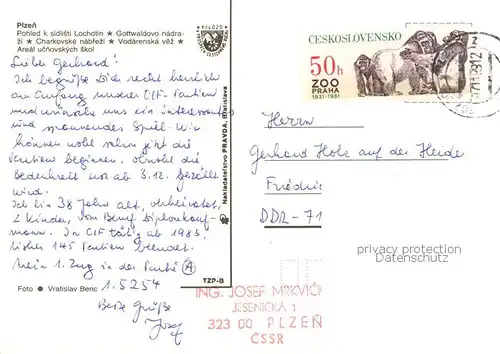 Plzeň
Pohled k sídlišti Lochotín ● Gottwaldovo nádra-
ží ● Charkovské nábřeží ● Vodárenská věž ●
Areál učňovských škol
Lieber Gerhard!
Ich begrüße Dich recht herzlich
am Anfang unserer CIF-Partien
und wünsche uns ein interessantes
und spannendes Spiel. Wir
können wohl schon jetzt die
Partien beginnen, obwohl die
Bedenkzeit vor ab 3.12. gezählt
wird.
Ich bin 38 Jahre alt, verheiratet,
2 Kinder, vom Beruf Diplomkauf-
mann. In CIF tätig ab 1983,
bisher 145 Partien beendet.
Mein 1. Zug in der Partie A
1. 5254
Beste Grüße
Josef
Foto ● Vratislav Benc
TZP-B
Nakladatelstvo PRAVDA, Bratislava
ČESKOSLOVENSKO
50h
ZOO
PRAHA
1931-1981
Herrn
Gerhard Holz auf der Heide
DDR-71
privacy protection
Datenschutz
ING. JOSEF MRKVIČ
JESENICKÁ 1
323 00 PLZEŇ
ČSSR